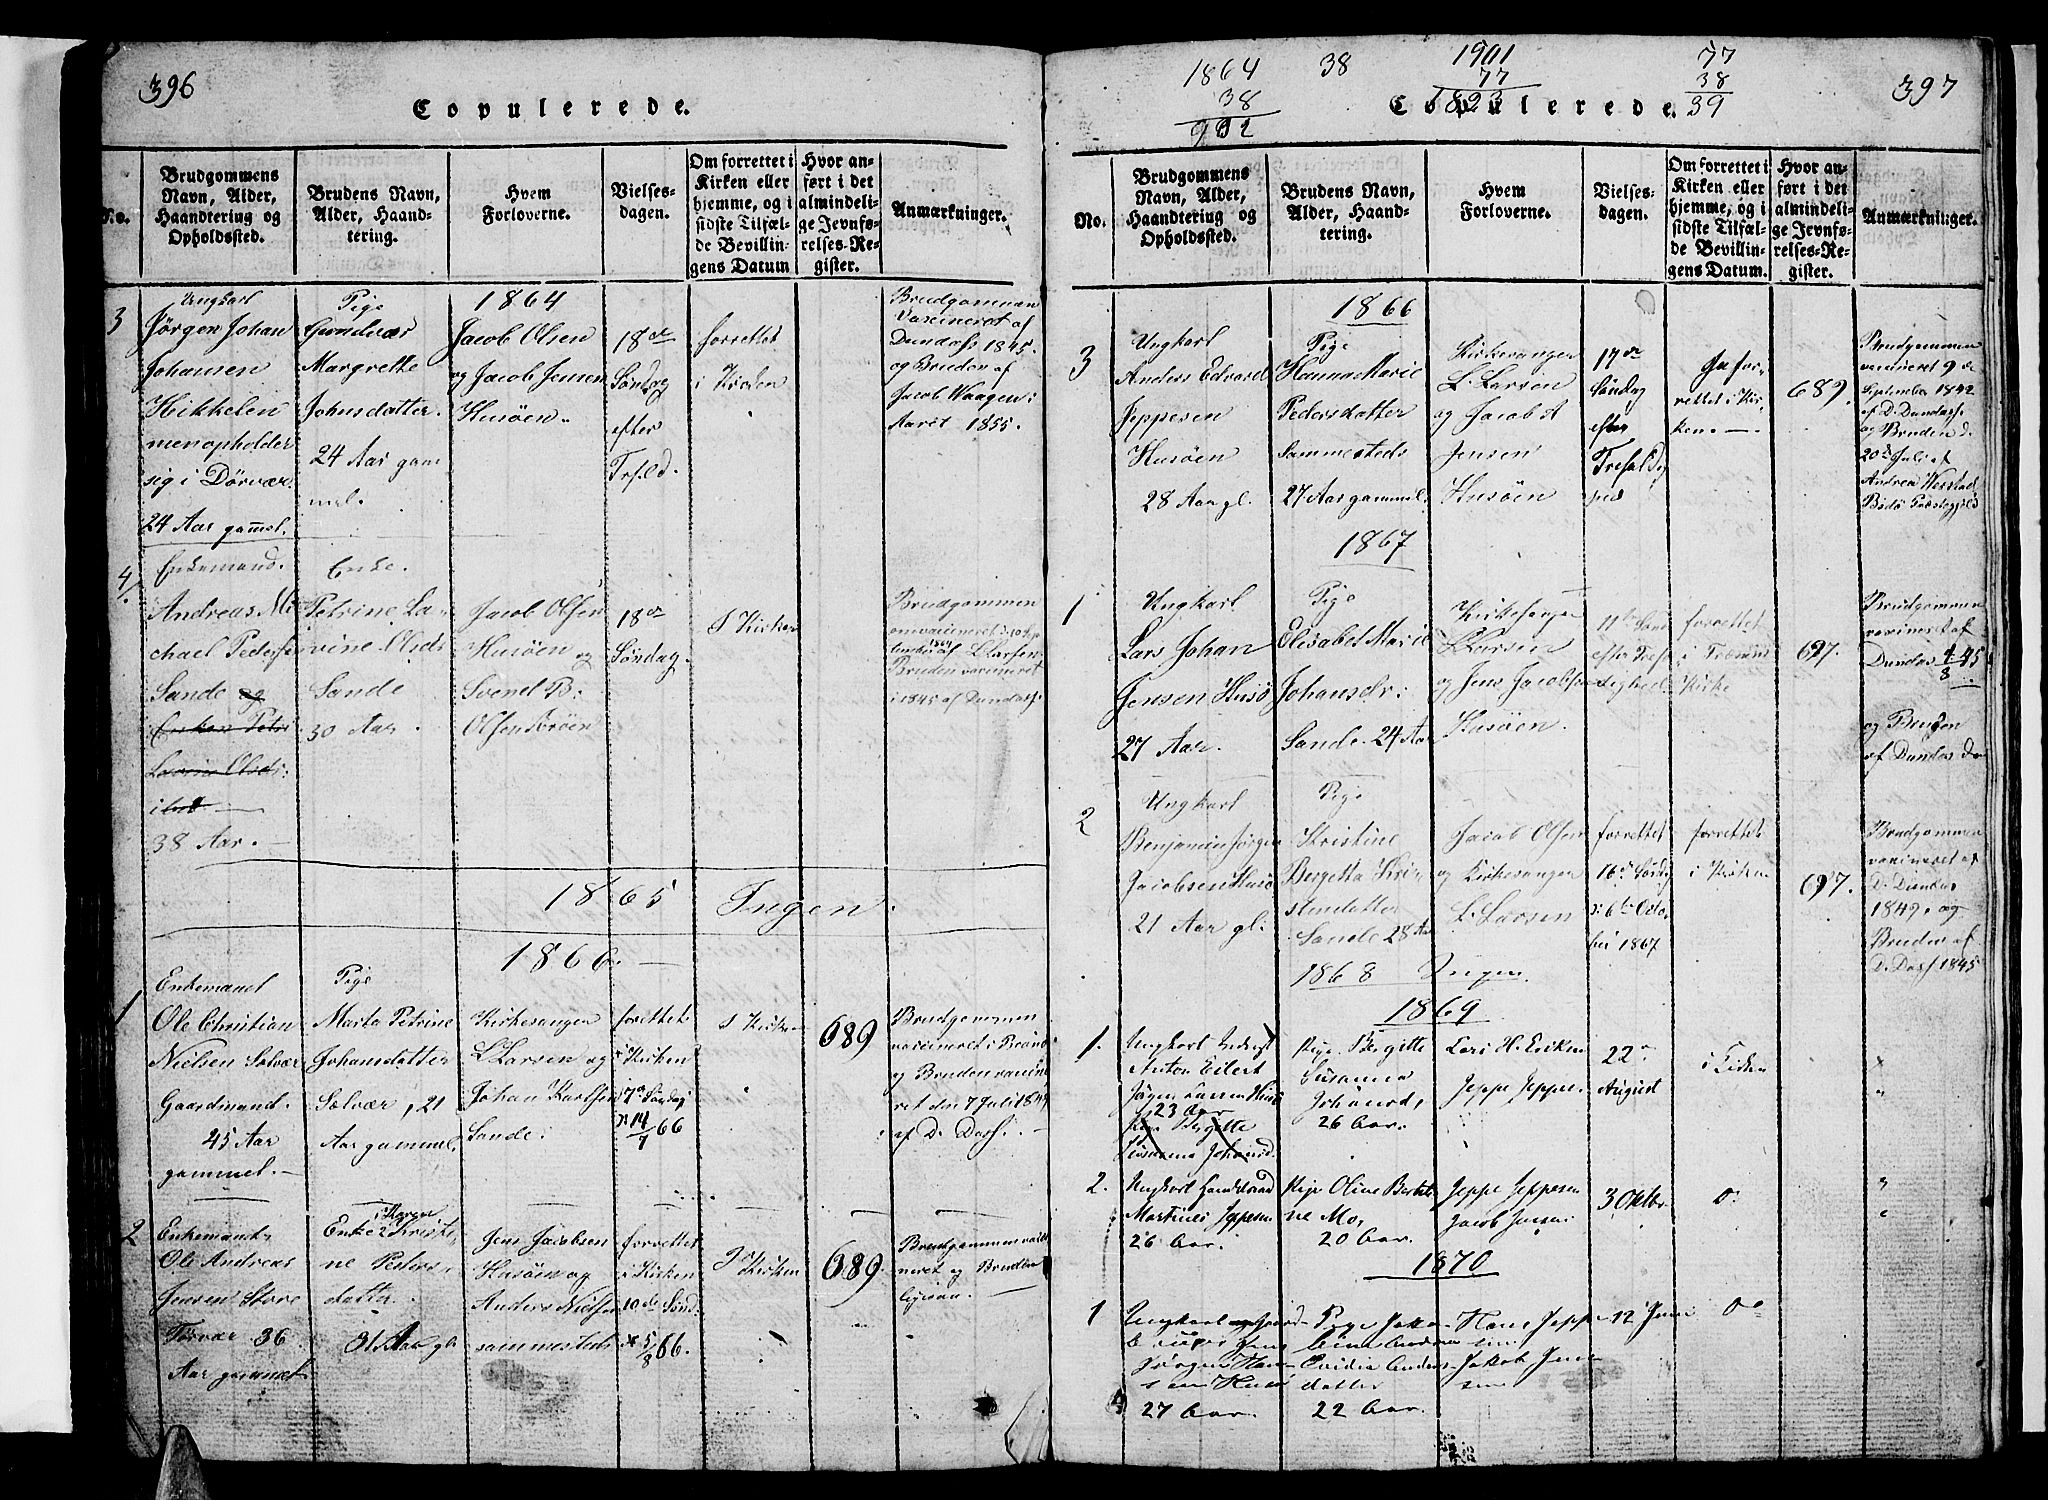 396
Copulerede.
No.
Brudgommens
Navn, Alder,
Haandtering og
Opholdssted.
Brudens Navn,
Alder, Haand-
tering.
Hvem
Forloverne.
Vielses-
dagen.
Om forrettet i
Kirken eller
hjemme, og i
sidste Tilfæl-
de Bevillin-
gens Datum
Hvor an-
ført i det
almindeli-
ge Jevnfø-
relses-Re-
gister.
Anmærkninger.
1864
3
Ungkarl
Jørgen Johan
Johansen
Hikkelen
men opholder
sig i Dørvær
24 Aar gammel.
Pige
Gundvær
Margrette
Johnsdatter.
24 Aar gam
mel.
Jacob Olsen
og Jacob Jensen
Husøen.
18de
Søndag
efter
Trefold.
forrettet
i Kirken
Brudgommen
Vaxineret af
Dundass 1845.
og Bruden af
Jacob Waagen i
Aaret 1855.
4
Enkemand.
Andreas Mi
chael Peders
Sande og
38 Aar.
Enke.
Petrine La-
vine Olsds
Sande
30 Aar.
Jacob Olsen
Husøen og
Svend P.
Olsen
18de
Søndag
I Kirken
Brudgommen
L. Larsen
Bruden vaxineret
i 1845 af Dundass.
1865 Ingen.
1866.
1
Enkemand
Ole Christian
Nielsen Selvær
Gaardmand.
45 Aar
gammel.
Pige
Marta Petrine
Johansdatter
Selvær, 21
Aar gammel.
Kirkesanger
L Larsen og
Johan Karlsen
Sande.
forettet
i Kirken
7de Søndag
14/7 66
I Kirken
689
Brudgommen
vaxineret i
og Bruden vaxine
ret den 7 Juli 184
af D. Dass.
2
Enkemand
Ole Andreas
Jensen Store
Tørvær 36
Aar gammel
Karen
Enke Kristi
ne Peders-
datter.
31 Aar gl
Jens Jacobsen
Husøen og
Anders Nielsen
sammesteds
forrettet
i Kirken
10de Sønd:
5/8 66.
I Kirken
689.
Brudgommen vaxi
neret og Bruden
ligesaa.
1864
38
902
38
1901
77
1823
77
38
39
397
Copulerede.
No.
Brudgommens
Navn, Alder,
Haandtering og
Opholdssted.
Brudens Navn,
Alder, Haand-
tering.
Hvem
Forloverne.
Vielses-
dagen.
Om forrettet i
Kirken eller
hjemme, og i
sidste Tilfæl-
de Bevillin-
gens Datum.
Hvor an-
ført i det
almindeli-
ge Jevnfø-
relses-Re-
gister.
Anmærkninger.
1866
3
Ungkarl
Anders Edvard
Jeppesen
Husøen
28 Aar gl.
Pige
Hanna Marie
Pedersdatter
Sammesteds
27 Aar gammel.
Kirkesanger
L. Larsen
og Jacob A
Jensen
Husøen
17de
Søndag
efter
Trefoldig
hed
Ja for-
rettet i Kir-
ken.
689.
Brudgommen
vaxineret 9de
September 1842
af D. Dundass.
og Bruden d.
20de Juli af
Andrea
Bodø Præstegjeld
1867
1
Ungkarl
Lars Johan
Jensen Husø
27 Aar.
Pige
Elisabet Marie
Johansdr:
Sande. 24 Aar
Kirkesanger
L Larsen
og Jens Jacobsen
Husøen.
11te Sønd
efter Tref
oighed
forrettet
i Trænens
Kirke
697.
Brudgommen
vaxineret af
Dundas 4/8 45
og Bruden
af Dundas Do
2
Ungkarl
Benjamin Jørgen
Jacobsen Husø
21 Aar gl:
Pige
Kristine
Bergetta Kri
stendatter
Sande 28 Aar
Jacob Olsen
og Kirkesanger
L. Larsen
forrettet
16de Søndag
d: 6te Octo
ber 1867
forrettet
i Kirken
697.
Brudgommen
vaxineret af
D. Dundas
1849. og
Bruden af
D. Dass 1845
1868 Ingen
1869
1.
Ungkarl
Anton Eilert
Jørgen Larsen Husø
23 Aar
Pige Bergitte
Susanna Johansd.
Pige Bergitte
Susanna
Johansd.
26 Aar.
Lars H. Eriksen
Jeppe Jeppe
22de
August
i Kirken
2.
Ungkarl
Martines Jeppesen
26 Aar.
Pige Oline Berteli
ne Mo,
20 Aar.
Jeppe Jeppesen
Jacob Jensen
3 Oktbr
Do
1870
1
Ungkarl
Jørgen Han-
sen Husø
27 Aar.
Pige Jako-
bine
Anders-
datter
22 Aar.
Hans Jeppe-
sen
Jakob Jen-
sen
12 Juni
Do